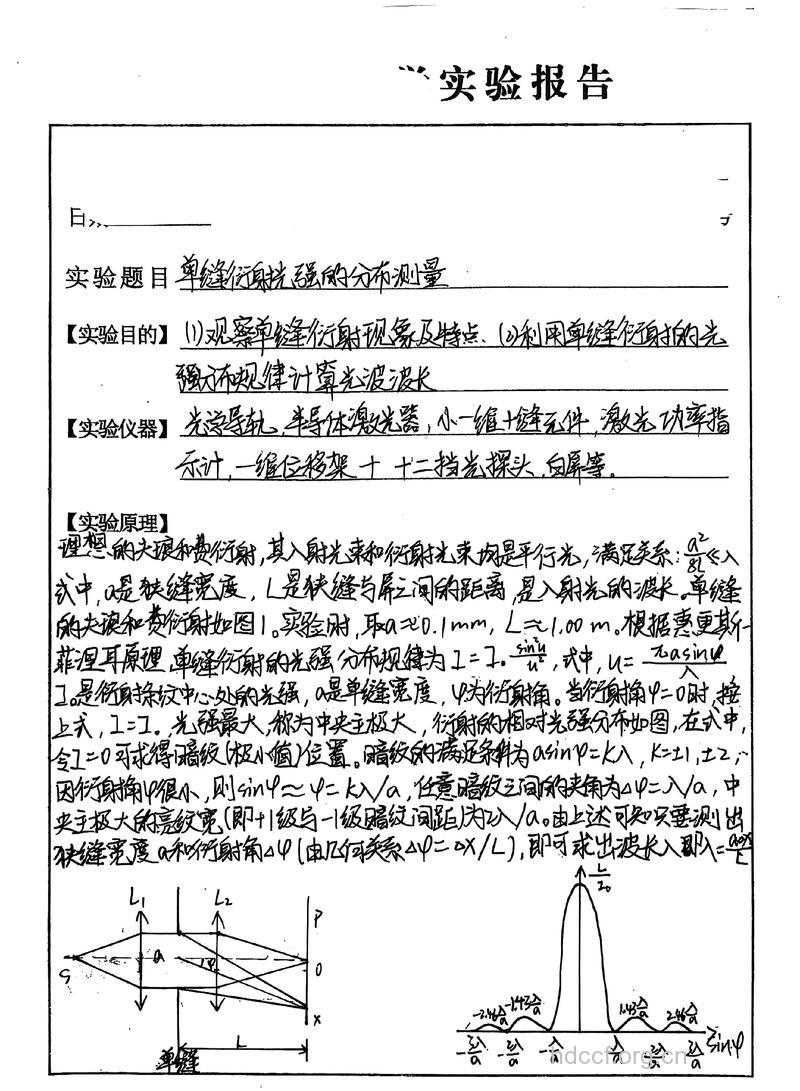 实验报告
实验题目 单缝衍射光强的分布测量
【实验目的】 (1)观察单缝衍射现象及特点. (2)利用单缝衍射的光
强分布规律计算光波波长
【实验仪器】 光学导轨, 半导体激光器, 小一维十缝元件, 激光功率指
示计, 一维位移架十 十二挡光探头, 白屏等。
【实验原理】
理想的夫琅和费衍射, 其入射光束和衍射光束均是平行光, 满足关系: a²/8L≪λ
式中, a是狭缝宽度, L是狭缝与屏之间的距离, 是入射光的波长。单缝
的夫琅和费衍射如图1。实验时, 取a≈0.1mm, L≈1.00m。根据惠更斯-
菲涅耳原理, 单缝衍射的光强分布规律为I=I₀ sin²u/u², 式中, u=πasinφ/λ
I₀是衍射条纹中心处的光强, a是单缝宽度, φ为衍射角。当衍射角φ=0时, 按
上式, I=I₀ 光强最大, 称为中央主极大, 衍射的相对光强分布如图, 在式中,
令I=0可求得暗纹(极小值)位置。暗纹的满足条件为asinφ=kλ, K=±1, ±2,…
因衍射角φ很小, 则sinφ≈φ=kλ/a, 任意暗纹之间的夹角为△φ=λ/a, 中
央主极大的亮纹宽(即+1级与-1级暗纹间距)为2λ/a。由上述可知只要测出
狭缝宽度a和衍射角△φ(由几何关系△φ=△X/L), 即可求出波长λ即λ=a△x/L
L₁ L₂ P
S a φ O
X
L
单缝
I/I₀
-2.46λ/a -1.43λ/a 1.43λ/a 2.46λ/a
-3λ/a -2λ/a -λ/a λ/a 2λ/a 3λ/a sinφ